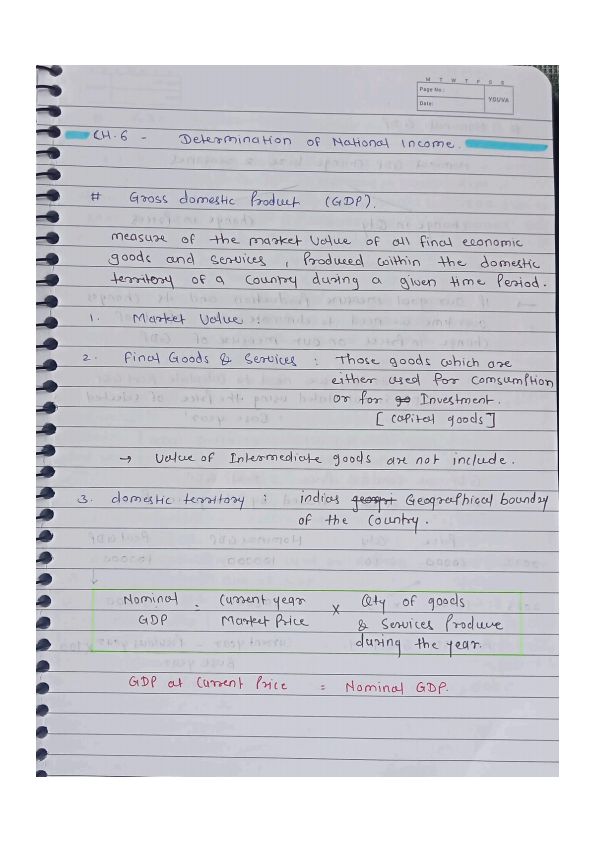 M T W T F S S
Page No.:
Date:
YOUVA
CH.6 - Determination of National Income.
# Gross domestic Product (GDP).
measure of the market value of all final economic
goods and services, Produced within the domestic
territory of a country during a given time Period.
1. Market Value
2. final Goods & Services : Those goods which are
either used for comsumption
or for go Investment.
[capital goods]
→ Value of Intermediate goods are not include.
3. domestic territory : indias geograt Geographical boundry
of the Country.
Nominal = Current year × Qty of goods
GDP Market Price & Services Produce
during the year.
GDP at Current Price = Nominal GDP.